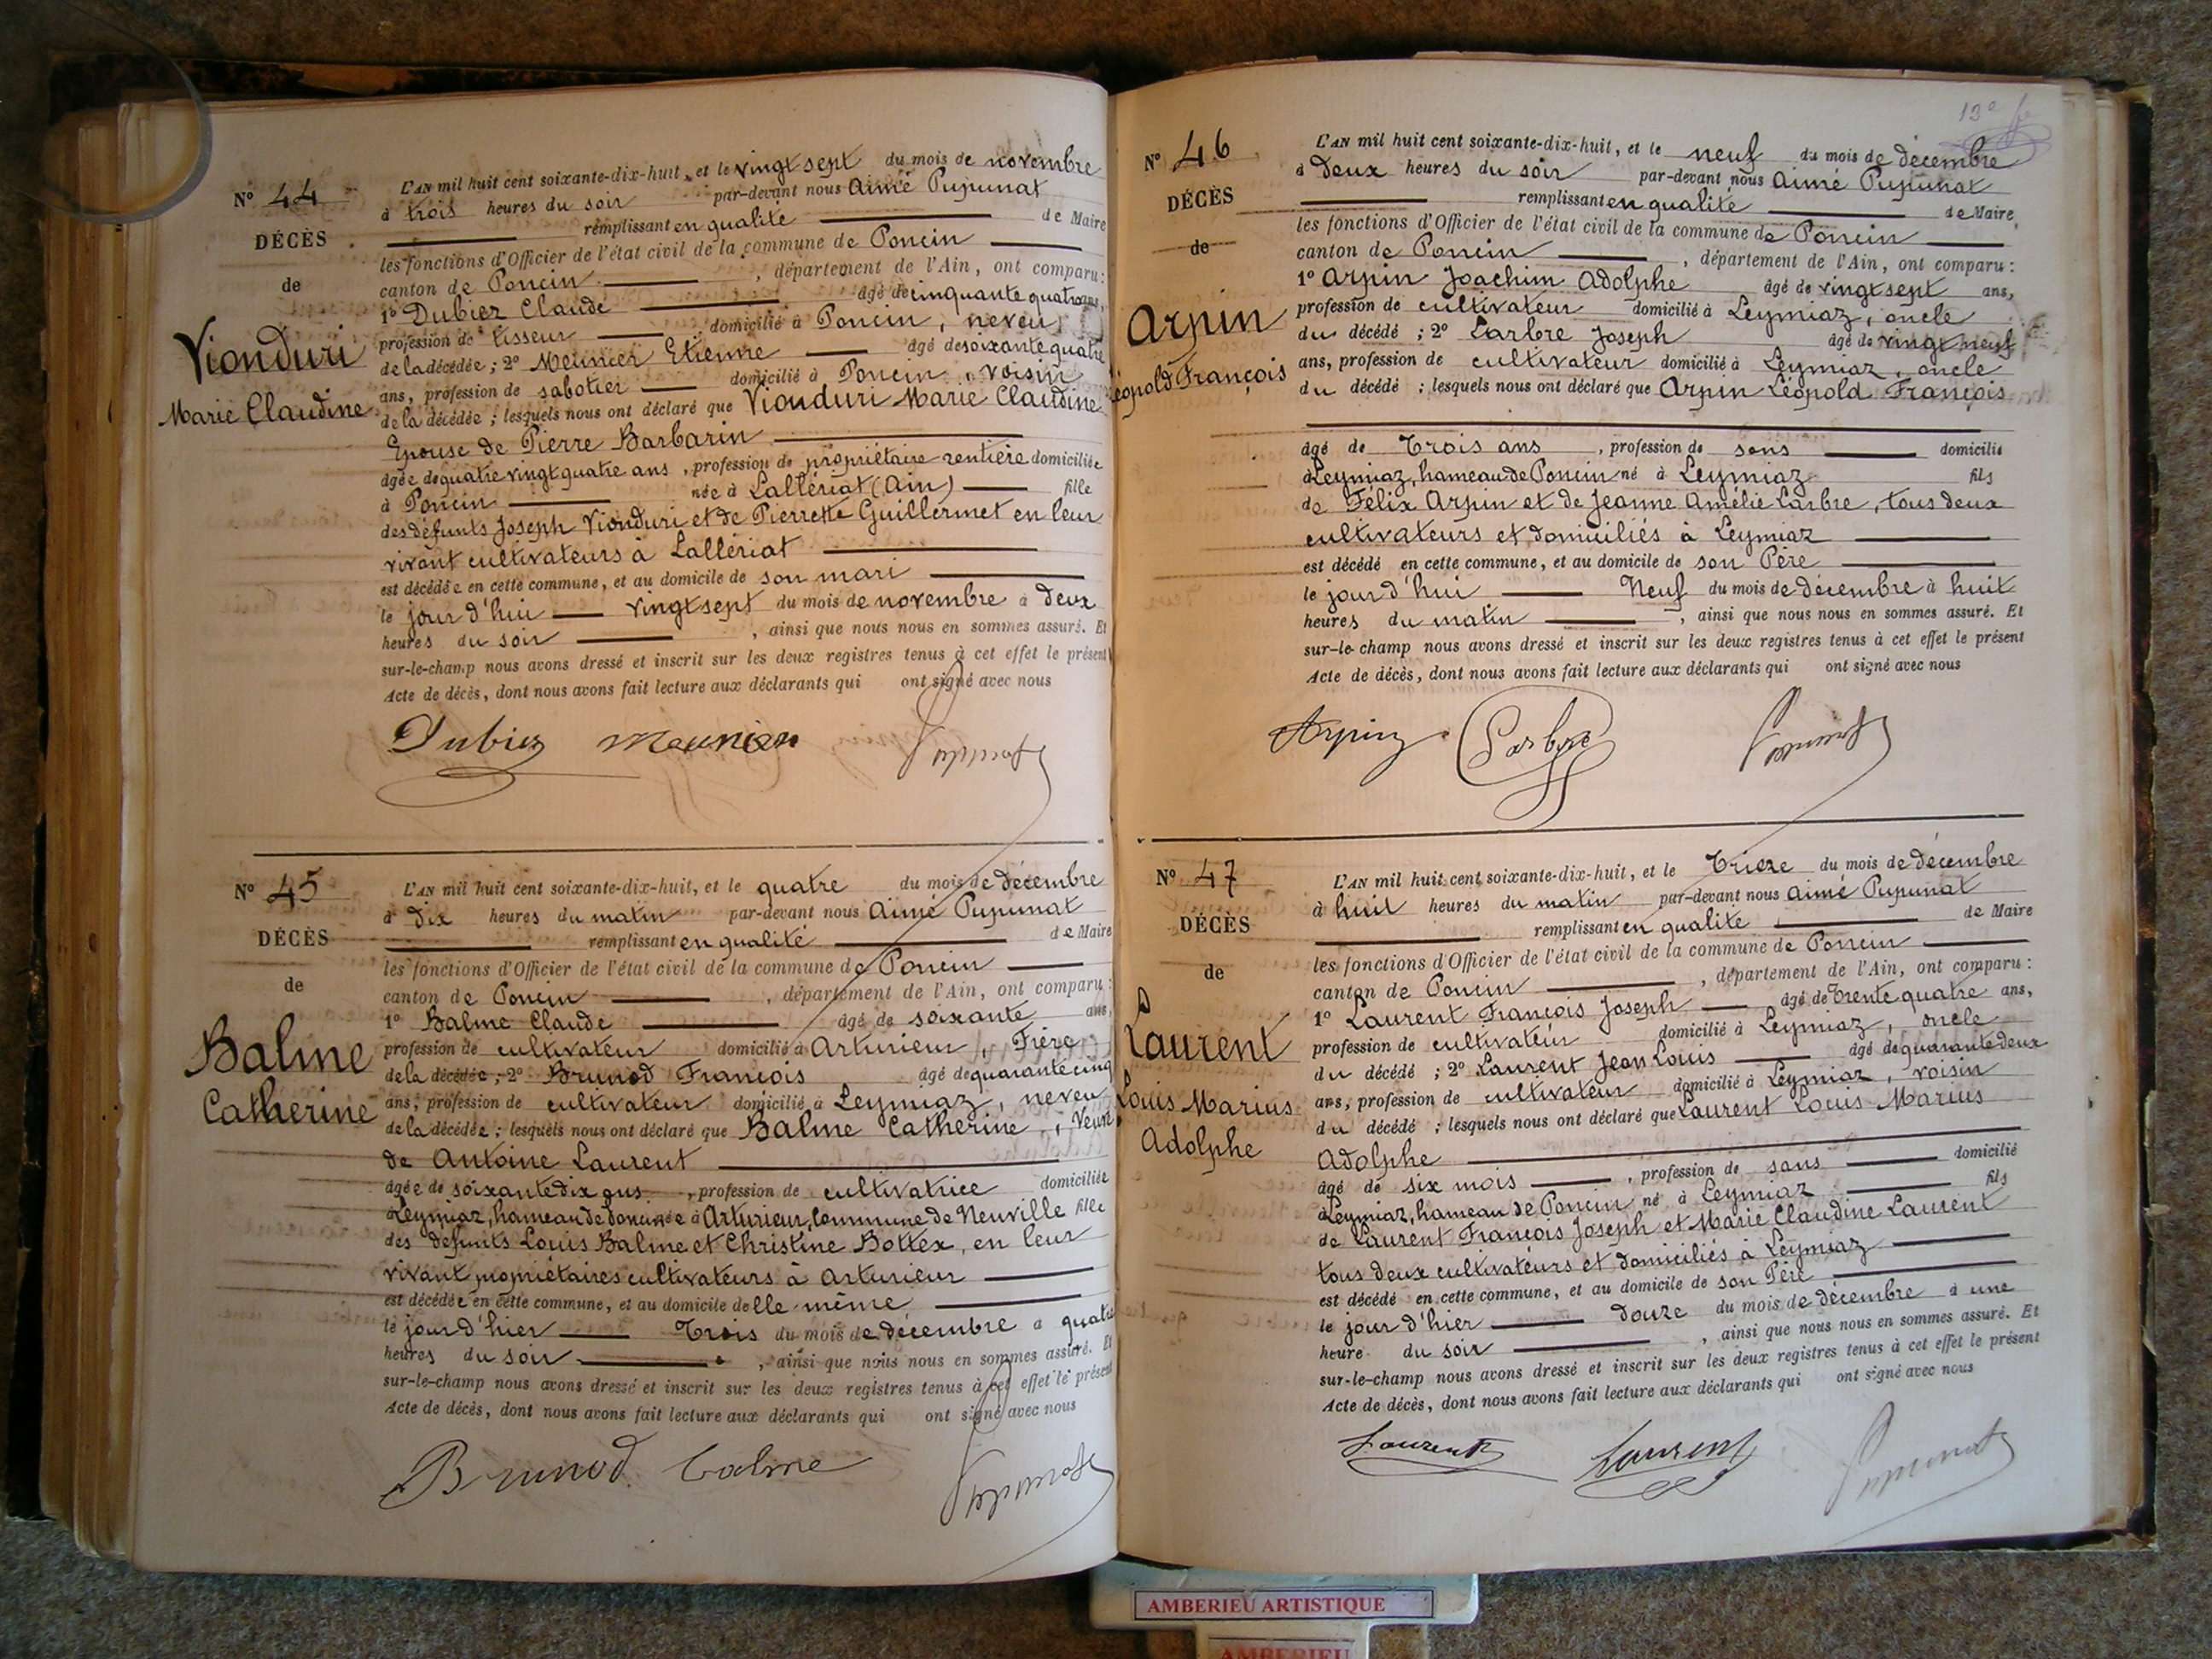 N° 44
DÉCÈS
de
Vionduri
Marie Claudine
L'AN mil huit cent soixante-dix-huit, et le vingt sept du mois de novembre
à trois heures du soir par-devant nous Aimé Pupunat
remplissant en qualité de Maire
les fonctions d'Officier de l'état civil de la commune de Poncin
canton de Poncin, département de l'Ain, ont comparu :
1° Dubiez Claude âgé de cinquante quatre ans,
profession de tisseur domicilié à Poncin, neveu
de la décédée ; 2° Meunier Etienne âgé de soixante quatre
ans, profession de sabotier domicilié à Poncin, voisin
de la décédée ; lesquels nous ont déclaré que Vionduri Marie Claudine
Epouse de Pierre Barbarin
âgée de quatre vingt quatre ans, profession de propriétaire rentière domiciliée
à Poncin née à Lallériat (Ain) fille
des défunts Joseph Vionduri et de Pierrette Guillermet en leur
vivant cultivateurs à Lallériat
est décédée en cette commune, et au domicile de son mari
le jour d'hui vingt sept du mois de novembre à deux
heures du soir, ainsi que nous nous en sommes assuré. Et
sur-le-champ nous avons dressé et inscrit sur les deux registres tenus à cet effet le présent
Acte de décès, dont nous avons fait lecture aux déclarants qui ont signé avec nous
Dubiez Meunier Pupunat
N° 45
DÉCÈS
de
Balme
Catherine
L'AN mil huit cent soixante-dix-huit, et le quatre du mois de décembre
à dix heures du matin par-devant nous Aimé Pupunat
remplissant en qualité de Maire
les fonctions d'Officier de l'état civil de la commune de Poncin
canton de Poncin, département de l'Ain, ont comparu :
1° Balme Claude âgé de soixante ans,
profession de cultivateur domicilié à Arturieu, Frère
de la décédée ; 2° Brunod François âgé de quarante cinq
ans, profession de cultivateur domicilié à Leymiaz, neveu
de la décédée ; lesquels nous ont déclaré que Balme Catherine, Veuve
de Antoine Laurent
âgée de soixante dix ans, profession de cultivatrice domiciliée
à Leymiaz, hameau de Poncin née à Arturieux, Commune de Neuville fille
des défunts Louis Balme et Christine Bottex, en leur
vivant propriétaires cultivateurs à Arturieux
est décédée en cette commune, et au domicile d'elle même
le jour d'hier Trois du mois de décembre à quatre
heures du soir, ainsi que nous nous en sommes assuré. Et
sur-le-champ nous avons dressé et inscrit sur les deux registres tenus à cet effet le présent
Acte de décès, dont nous avons fait lecture aux déclarants qui ont signé avec nous
Brunod balme Pupunat
13e
N° 46
DÉCÈS
de
Arpin
Léopold François
L'AN mil huit cent soixante-dix-huit, et le neuf du mois de décembre
à Deux heures du soir par-devant nous Aimé Pupunat
remplissant en qualité de Maire,
les fonctions d'Officier de l'état civil de la commune de Poncin
canton de Poncin, département de l'Ain, ont comparu :
1° Arpin Joachim Adolphe âgé de vingt sept ans,
profession de cultivateur domicilié à Leymiaz, oncle
du décédé ; 2° Larbre Joseph âgé de vingt neuf
ans, profession de cultivateur domicilié à Leymiaz, oncle
du décédé ; lesquels nous ont déclaré que Arpin Léopold François
âgé de Trois ans, profession de sans domicilié
à Leymiaz, hameau de Poncin né à Leymiaz fils
de Félix Arpin et de Jeanne Amélie Larbre, tous deux
cultivateurs et domiciliés à Leymiaz
est décédé en cette commune, et au domicile de son Père
le jour d'hui Neuf du mois de décembre à huit
heures du matin, ainsi que nous nous en sommes assuré. Et
sur-le-champ nous avons dressé et inscrit sur les deux registres tenus à cet effet le présent
Acte de décès, dont nous avons fait lecture aux déclarants qui ont signé avec nous
Arpin Larbre Pupunat
N° 47
DÉCÈS
de
Laurent
Louis Marius
Adolphe
L'AN mil huit cent soixante-dix-huit, et le Trieze du mois de décembre
à huit heures du matin par-devant nous Aimé Pupunat
remplissant en qualité de Maire
les fonctions d'Officier de l'état civil de la commune de Poncin
canton de Poncin, département de l'Ain, ont comparu :
1° Laurent François Joseph âgé de Trente quatre ans,
profession de cultivateur domicilié à Leymiaz, oncle
du décédé ; 2° Laurent Jean Louis âgé de quarante deux
ans, profession de cultivateur domicilié à Leymiaz, voisin
du décédé ; lesquels nous ont déclaré que Laurent Louis Marius
Adolphe
âgé de six mois, profession de sans domicilié
à Leymiaz, hameau de Poncin né à Leymiaz fils
de Laurent François Joseph et Marie Claudine Laurent
tous deux cultivateurs et domiciliés à Leymiaz
est décédé en cette commune, et au domicile de son Père
le jour d'hier douze du mois de décembre à une
heure du soir, ainsi que nous nous en sommes assuré. Et
sur-le-champ nous avons dressé et inscrit sur les deux registres tenus à cet effet le présent
Acte de décès, dont nous avons fait lecture aux déclarants qui ont signé avec nous
Laurent Laurent Pupunat
AMBERIEU ARTISTIQUE
AMBERIEU